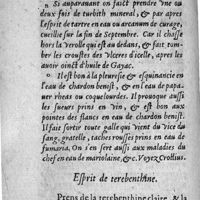 „ Si auparauant on fait prendre vne ou
deux fois de turbith mineral, & par apres
l'esprit de tartre en eau ou arcanum de carage,
cueillie sur la fin de Septembre. Car il chasse
hors la verolle qui est au dedans, & fait tom-
ber les croustes des vlceres d'icelle, apres les
auoir oinct d'huile de Gayac.
Il est bon à la pleuresie & esquinancie en
l'eau de chardon benist, & en l'eau de papa-
uer rheas ou coquelourdes. Il prouoque aussi
les sueurs prins en vin, & est bon aux
pointes des flancs en eau de chardon benist.
Il fait sortir toute galle qui vient du vice du
sang, gratelle, taches rousses prins en eau de
fumaria. On s'en sert aussi aux maladies du
chef en eau de mariolaine, &c. Voyez Crollius.
Esprit de terebenthine.
Prens de la terebenthine claire, & la